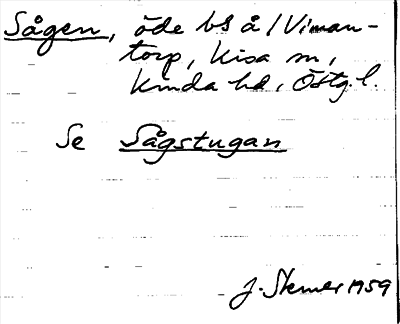 Sågen, öde bs å /Viman-
torp, Kisa sn,
Kinda hd, Östg. l.
Se Sågstugan
J. Sterner 1959